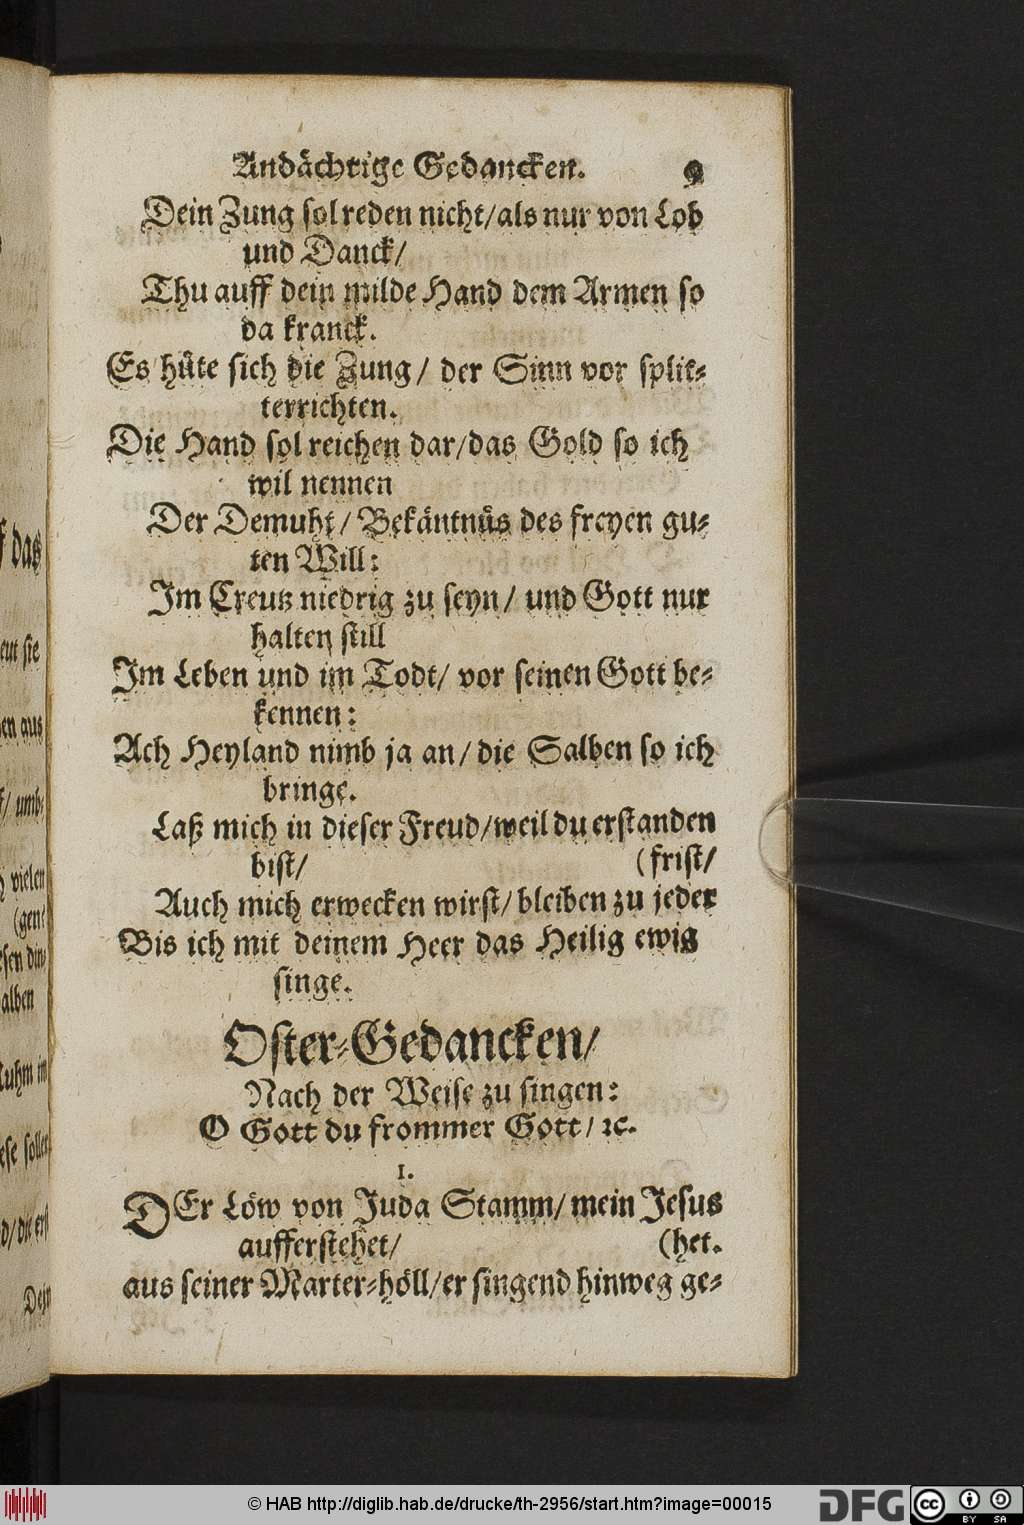 Andächtige Gedancken. 9
Dein Zung sol reden nicht/als nur von Lob
und Danck/
Thu auff dein milde Hand dem Armen so
da kranck.
Es hüte sich die Zung/ der Sinn vor split-
terrichten.
Die Hand sol reichen dar/das Gold so ich
wil nennen
Der Demuht/ Bekäntnüs des freyen gu-
ten Will:
Im Creutz niedrig zu seyn/ und Gott nur
halten still
Im Leben und im Todt/ vor seinen Gott be-
kennen:
Ach Heyland nimb ja an/ die Salben so ich
bringe.
Laß mich in dieser Freud/weil du erstanden
bist/ (frist/
Auch mich erwecken wirst/ bleiben zu jeder
Bis ich mit deinem Heer das Heilig ewig
singe.
Oster-Gedancken/
Nach der Weise zu singen:
O Gott du frommer Gott/ ꝛc.
1.
DEr Löw von Juda Stamm/ mein Jesus
aufferstehet/ (het.
aus seiner Marter-höll/er singend hinweg ge-
das
sie
aus
umb-
vielen
(gen/
din-
alben
Ruhm im
Dein
© HAB http://diglib.hab.de/drucke/th-2956/start.htm?image=00015
DFG
cc
BY SA